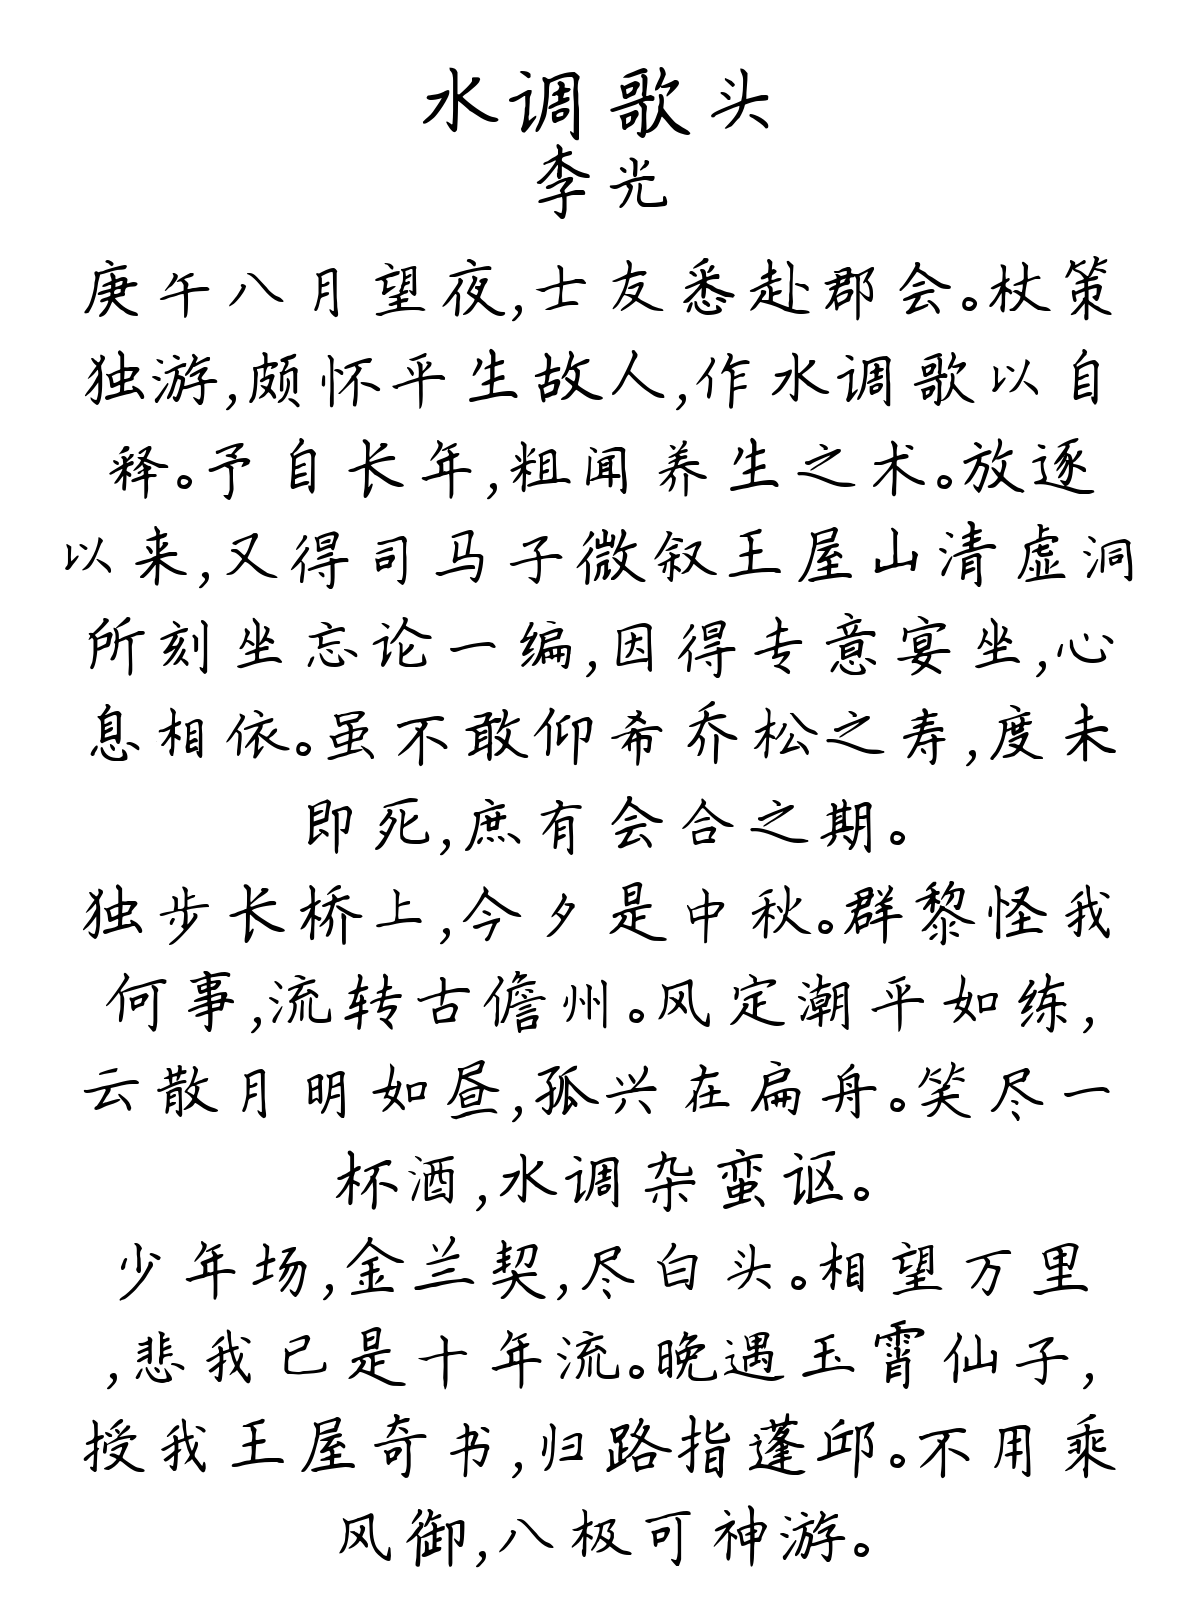 水调歌头
李光
庚午八月望夜,士友悉赴郡会。杖策
独游,颇怀平生故人,作水调歌以自
释。予自长年,粗闻养生之术。放逐
以来,又得司马子微叙王屋山清虚洞
所刻坐忘论一编,因得专意宴坐,心
息相依。虽不敢仰希乔松之寿,度未
即死,庶有会合之期。
独步长桥上,今夕是中秋。群黎怪我
何事,流转古儋州。风定潮平如练,
云散月明如昼,孤兴在扁舟。笑尽一
杯酒,水调杂蛮讴。
少年场,金兰契,尽白头。相望万里
,悲我已是十年流。晚遇玉霄仙子,
授我王屋奇书,归路指蓬邱。不用乘
风御,八极可神游。